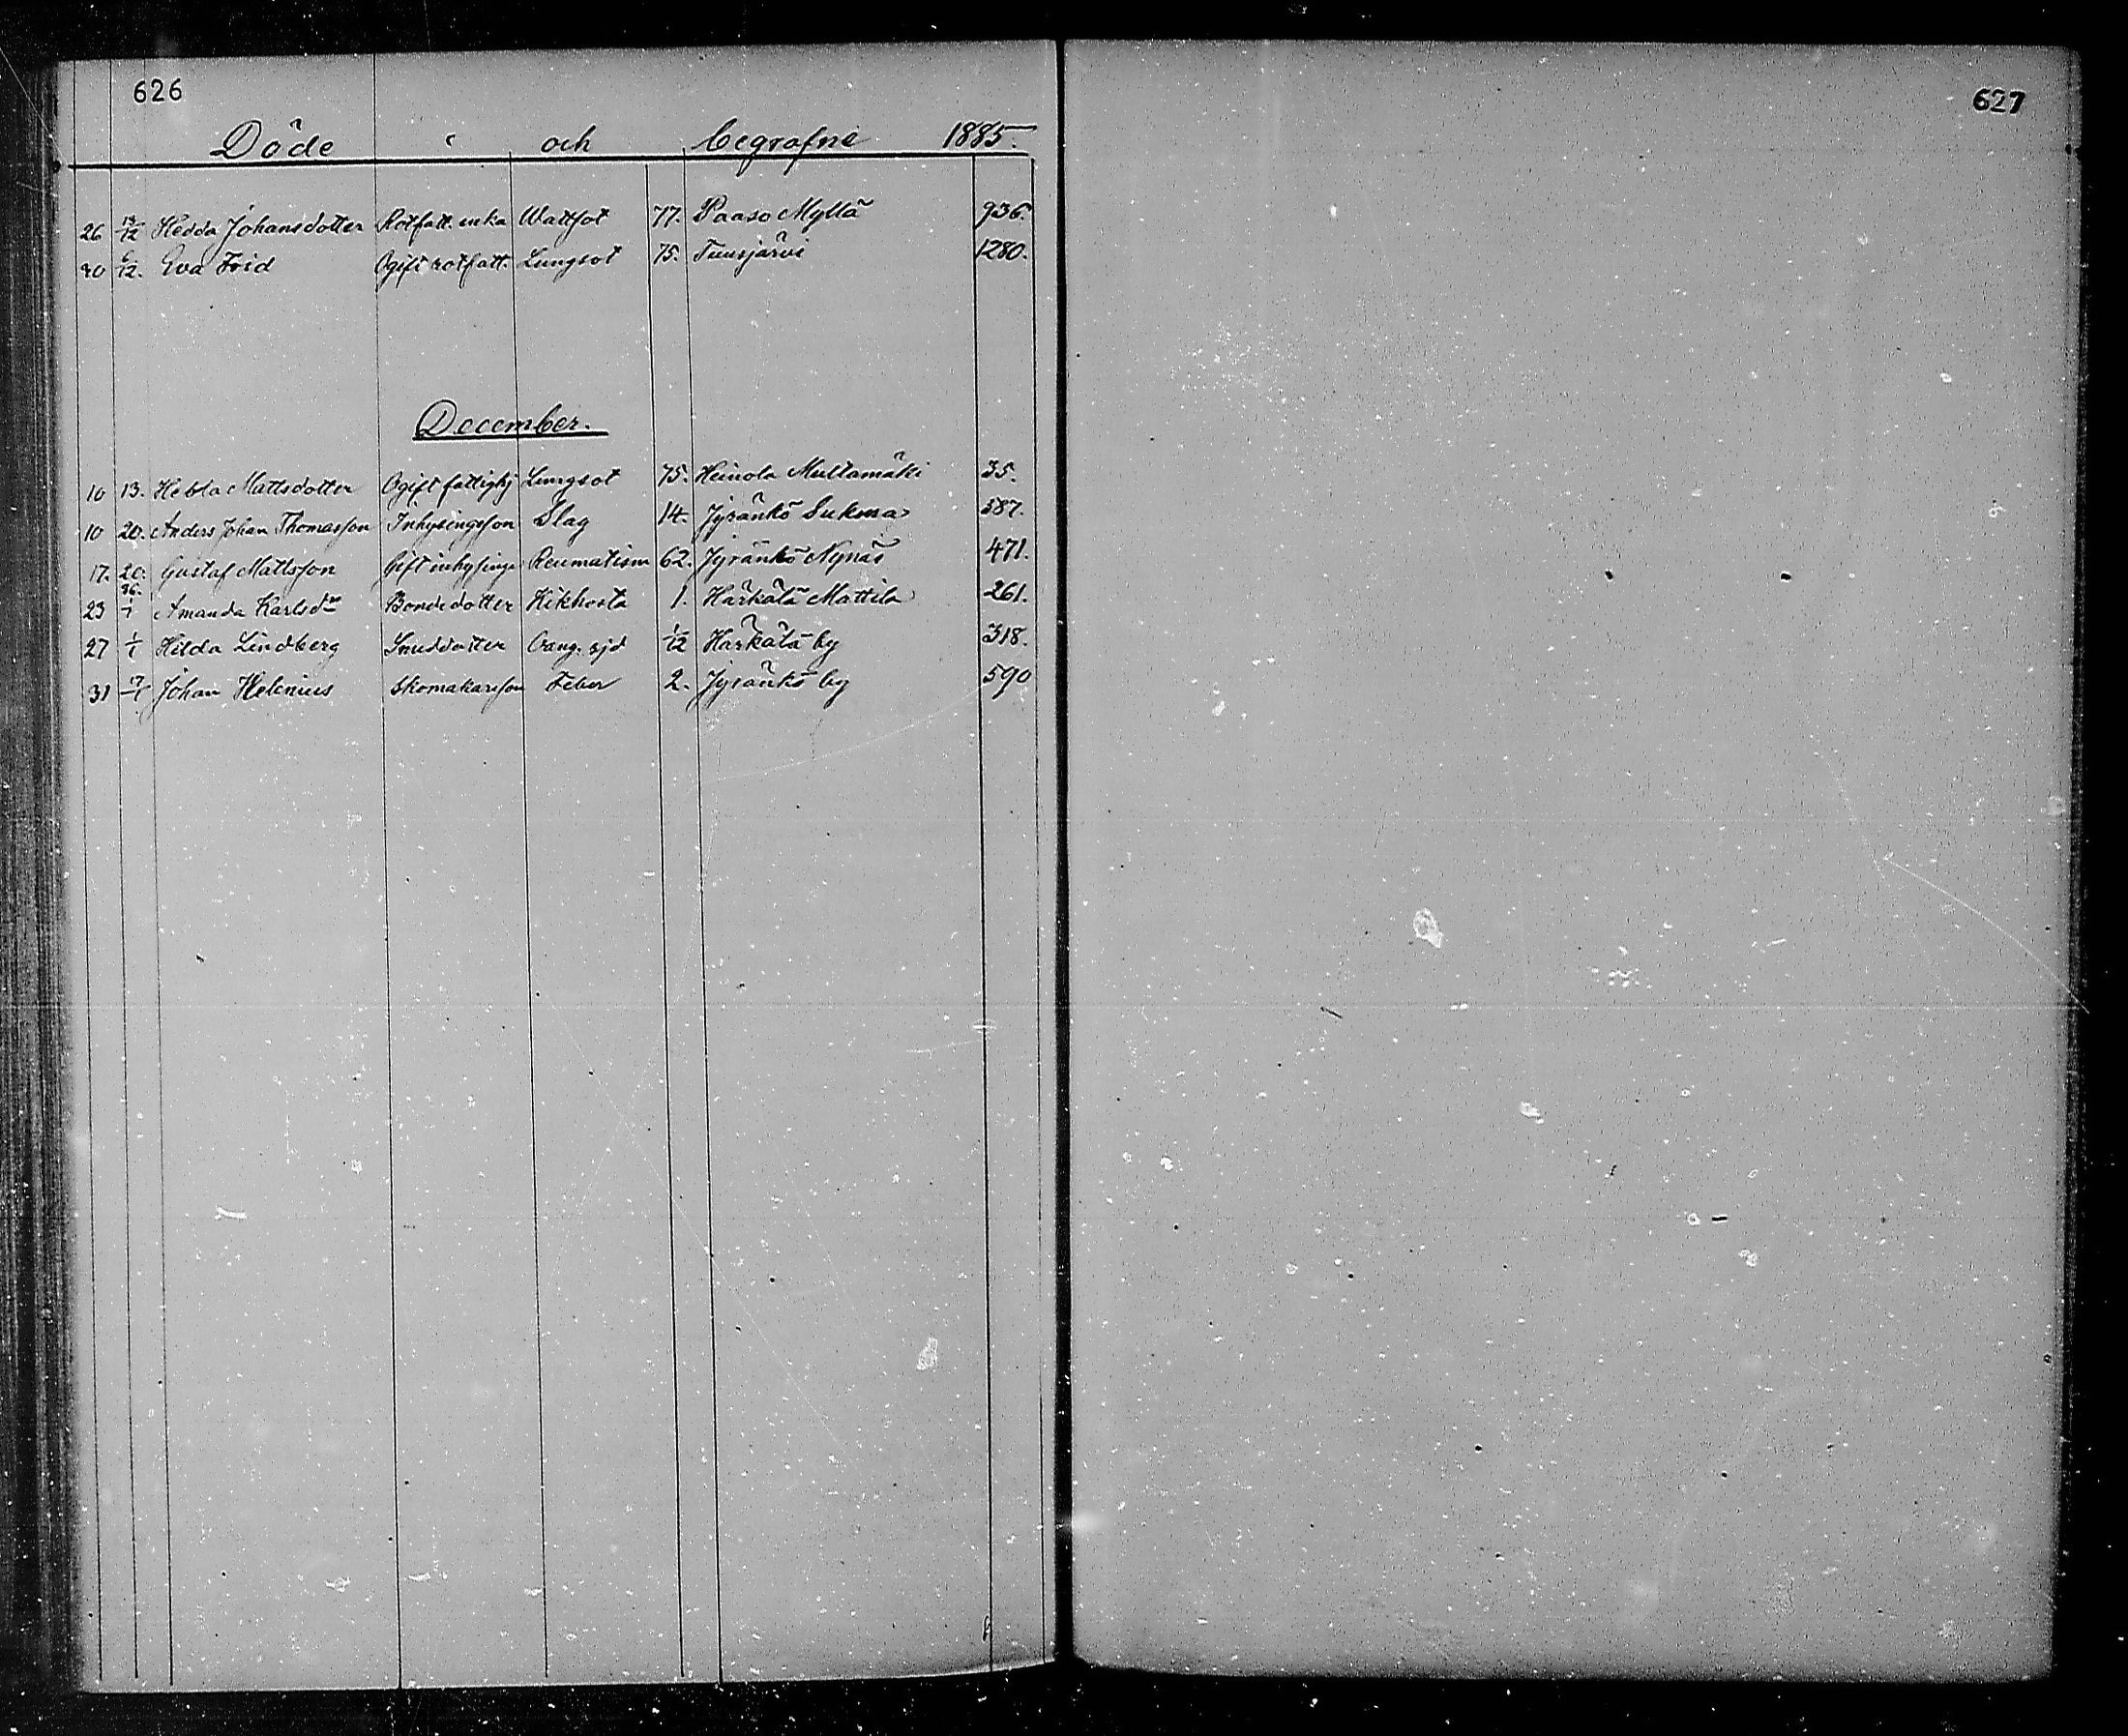 626
627
Döde och begrafne 1885.
26 13/12 Hedda Johansdotter Rotfatt. enka Wattsot 77. Paaso Myllä 936.
30 6/12. Eva Frid Ogift rotfatt. Lungsot 75. Tuusjärvi 1280.
December.
10 13. Hebla Mattsdotter Ogift fattighj Lungsot 75. Heinola Multamäki 35.
10 20. Anders Johan Thomasson Inhysingsson Slag 14. Jyränkö Sukma 587.
17. 20. Gustaf Mattsson Gift inhysing Reumatism 62. Jyränkö Nynäs 471.
23 Amanda Karlsdr Bondedotter Kikhosta 1. Härkälä Mattila 261.
27 1/1 Hilda Lindberg Smeddotter Oang. sjd 1/12 Härkälä by 318.
31 17/1 Johan Helenius Skomakareson Feber 2. Jyränkö by 590